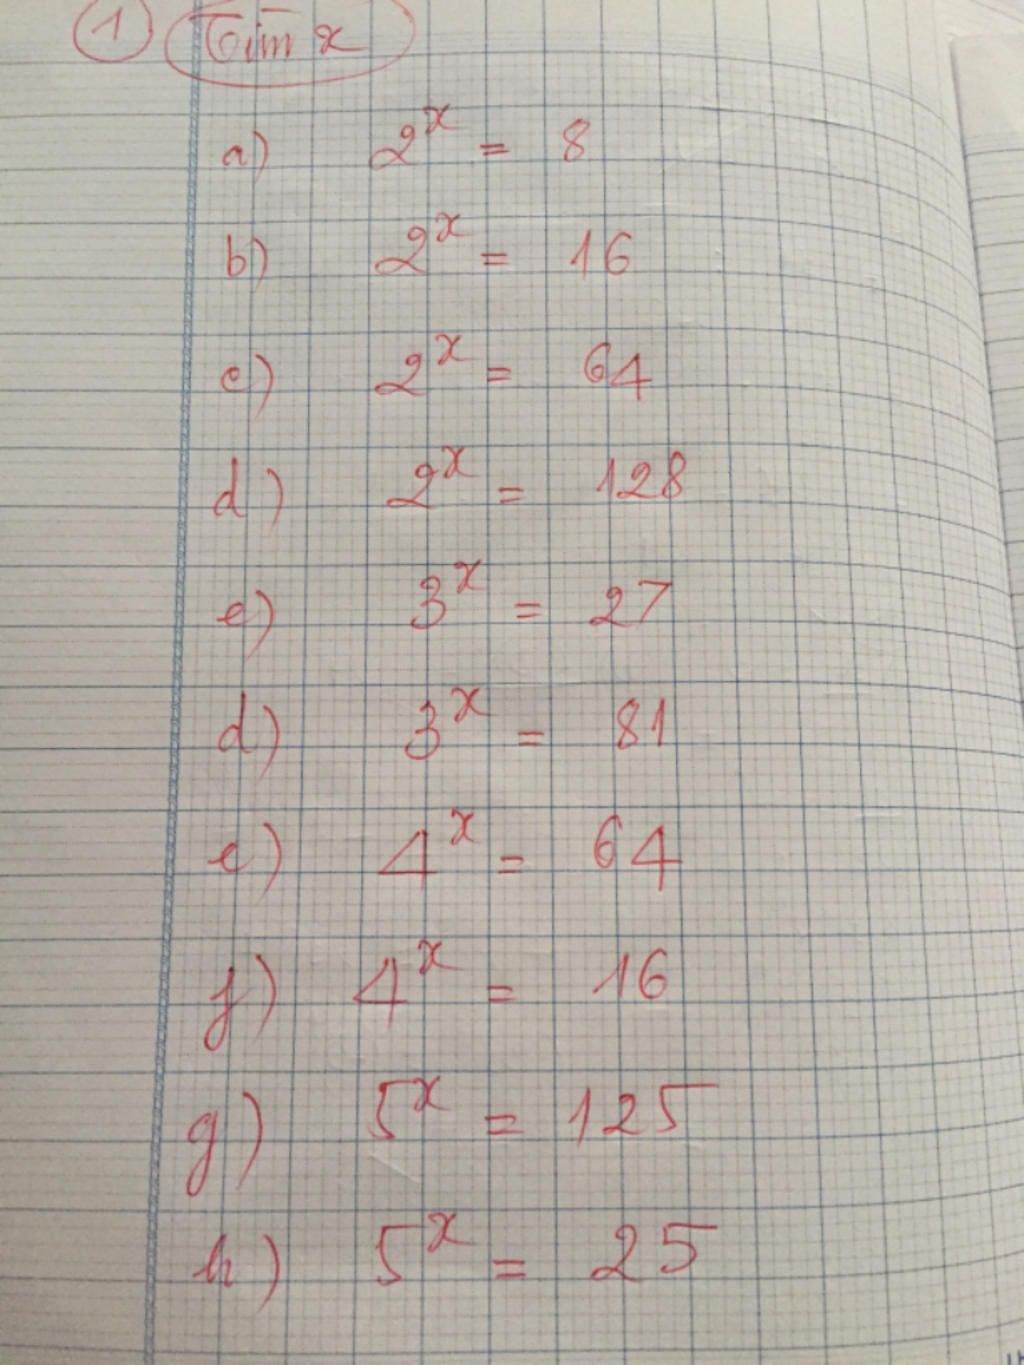 1 Tìm x
a) 2^x = 8
b) 2^x = 16
c) 2^x = 64
d) 2^x = 128
e) 3^x = 27
d) 3^x = 81
e) 4^x = 64
f) 4^x = 16
g) 5^x = 125
h) 5^x = 25